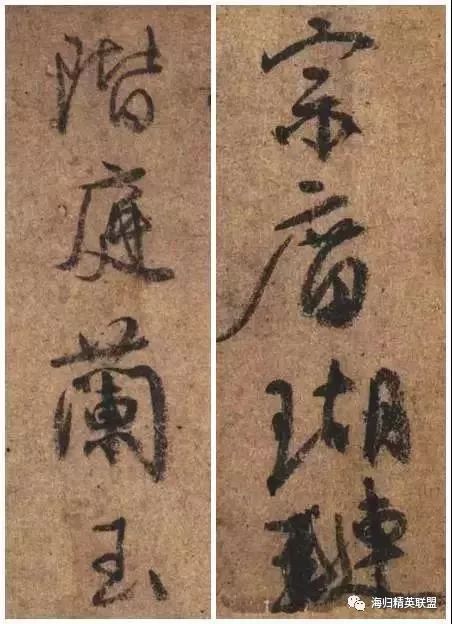 宗庙瑚琏
階庭蘭玉
海归精英联盟